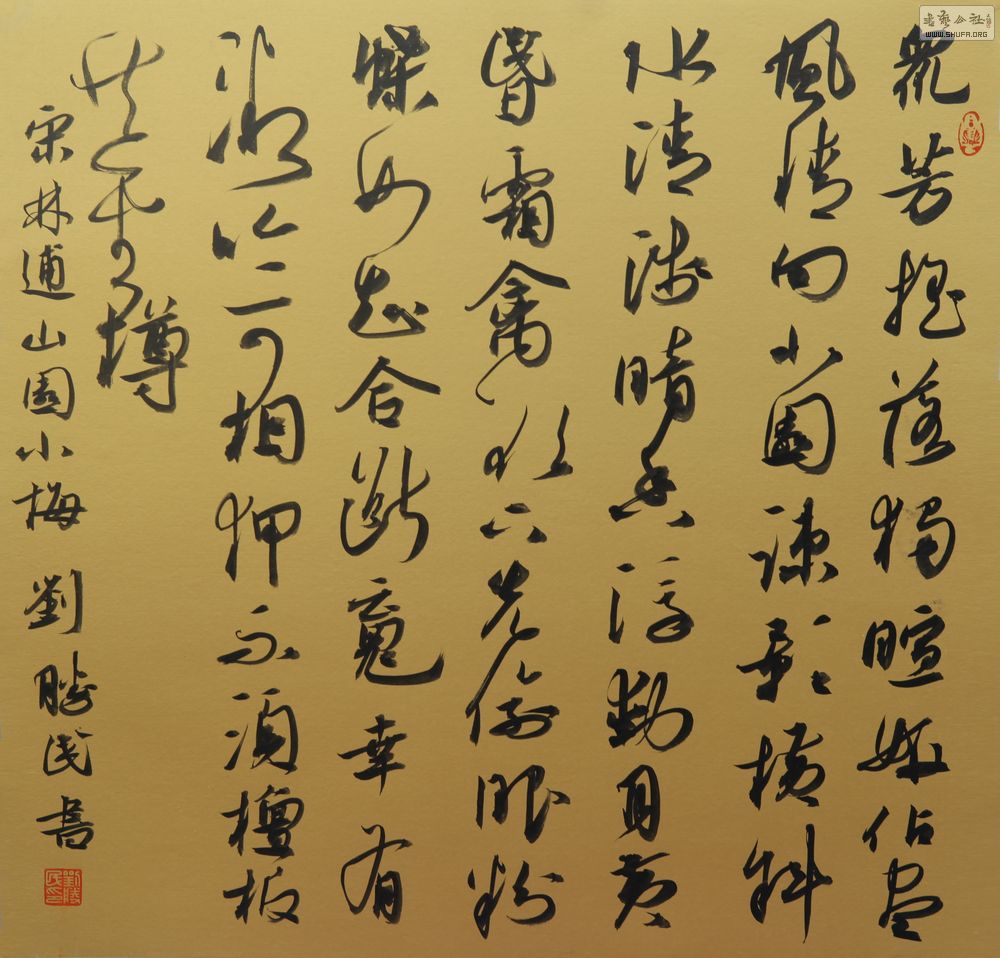 衆芳搖落獨暄妍佔盡
風情向小園疎影橫斜
水清淺暗香浮動月黃
昬霜禽欲下先偷眼粉
蝶如知合斷魂幸有
微吟可相狎不須檀板
共金樽
宋林逋山園小梅 劉勝民書
劉勝民印
書藝公社
WWW.SHUFA.ORG